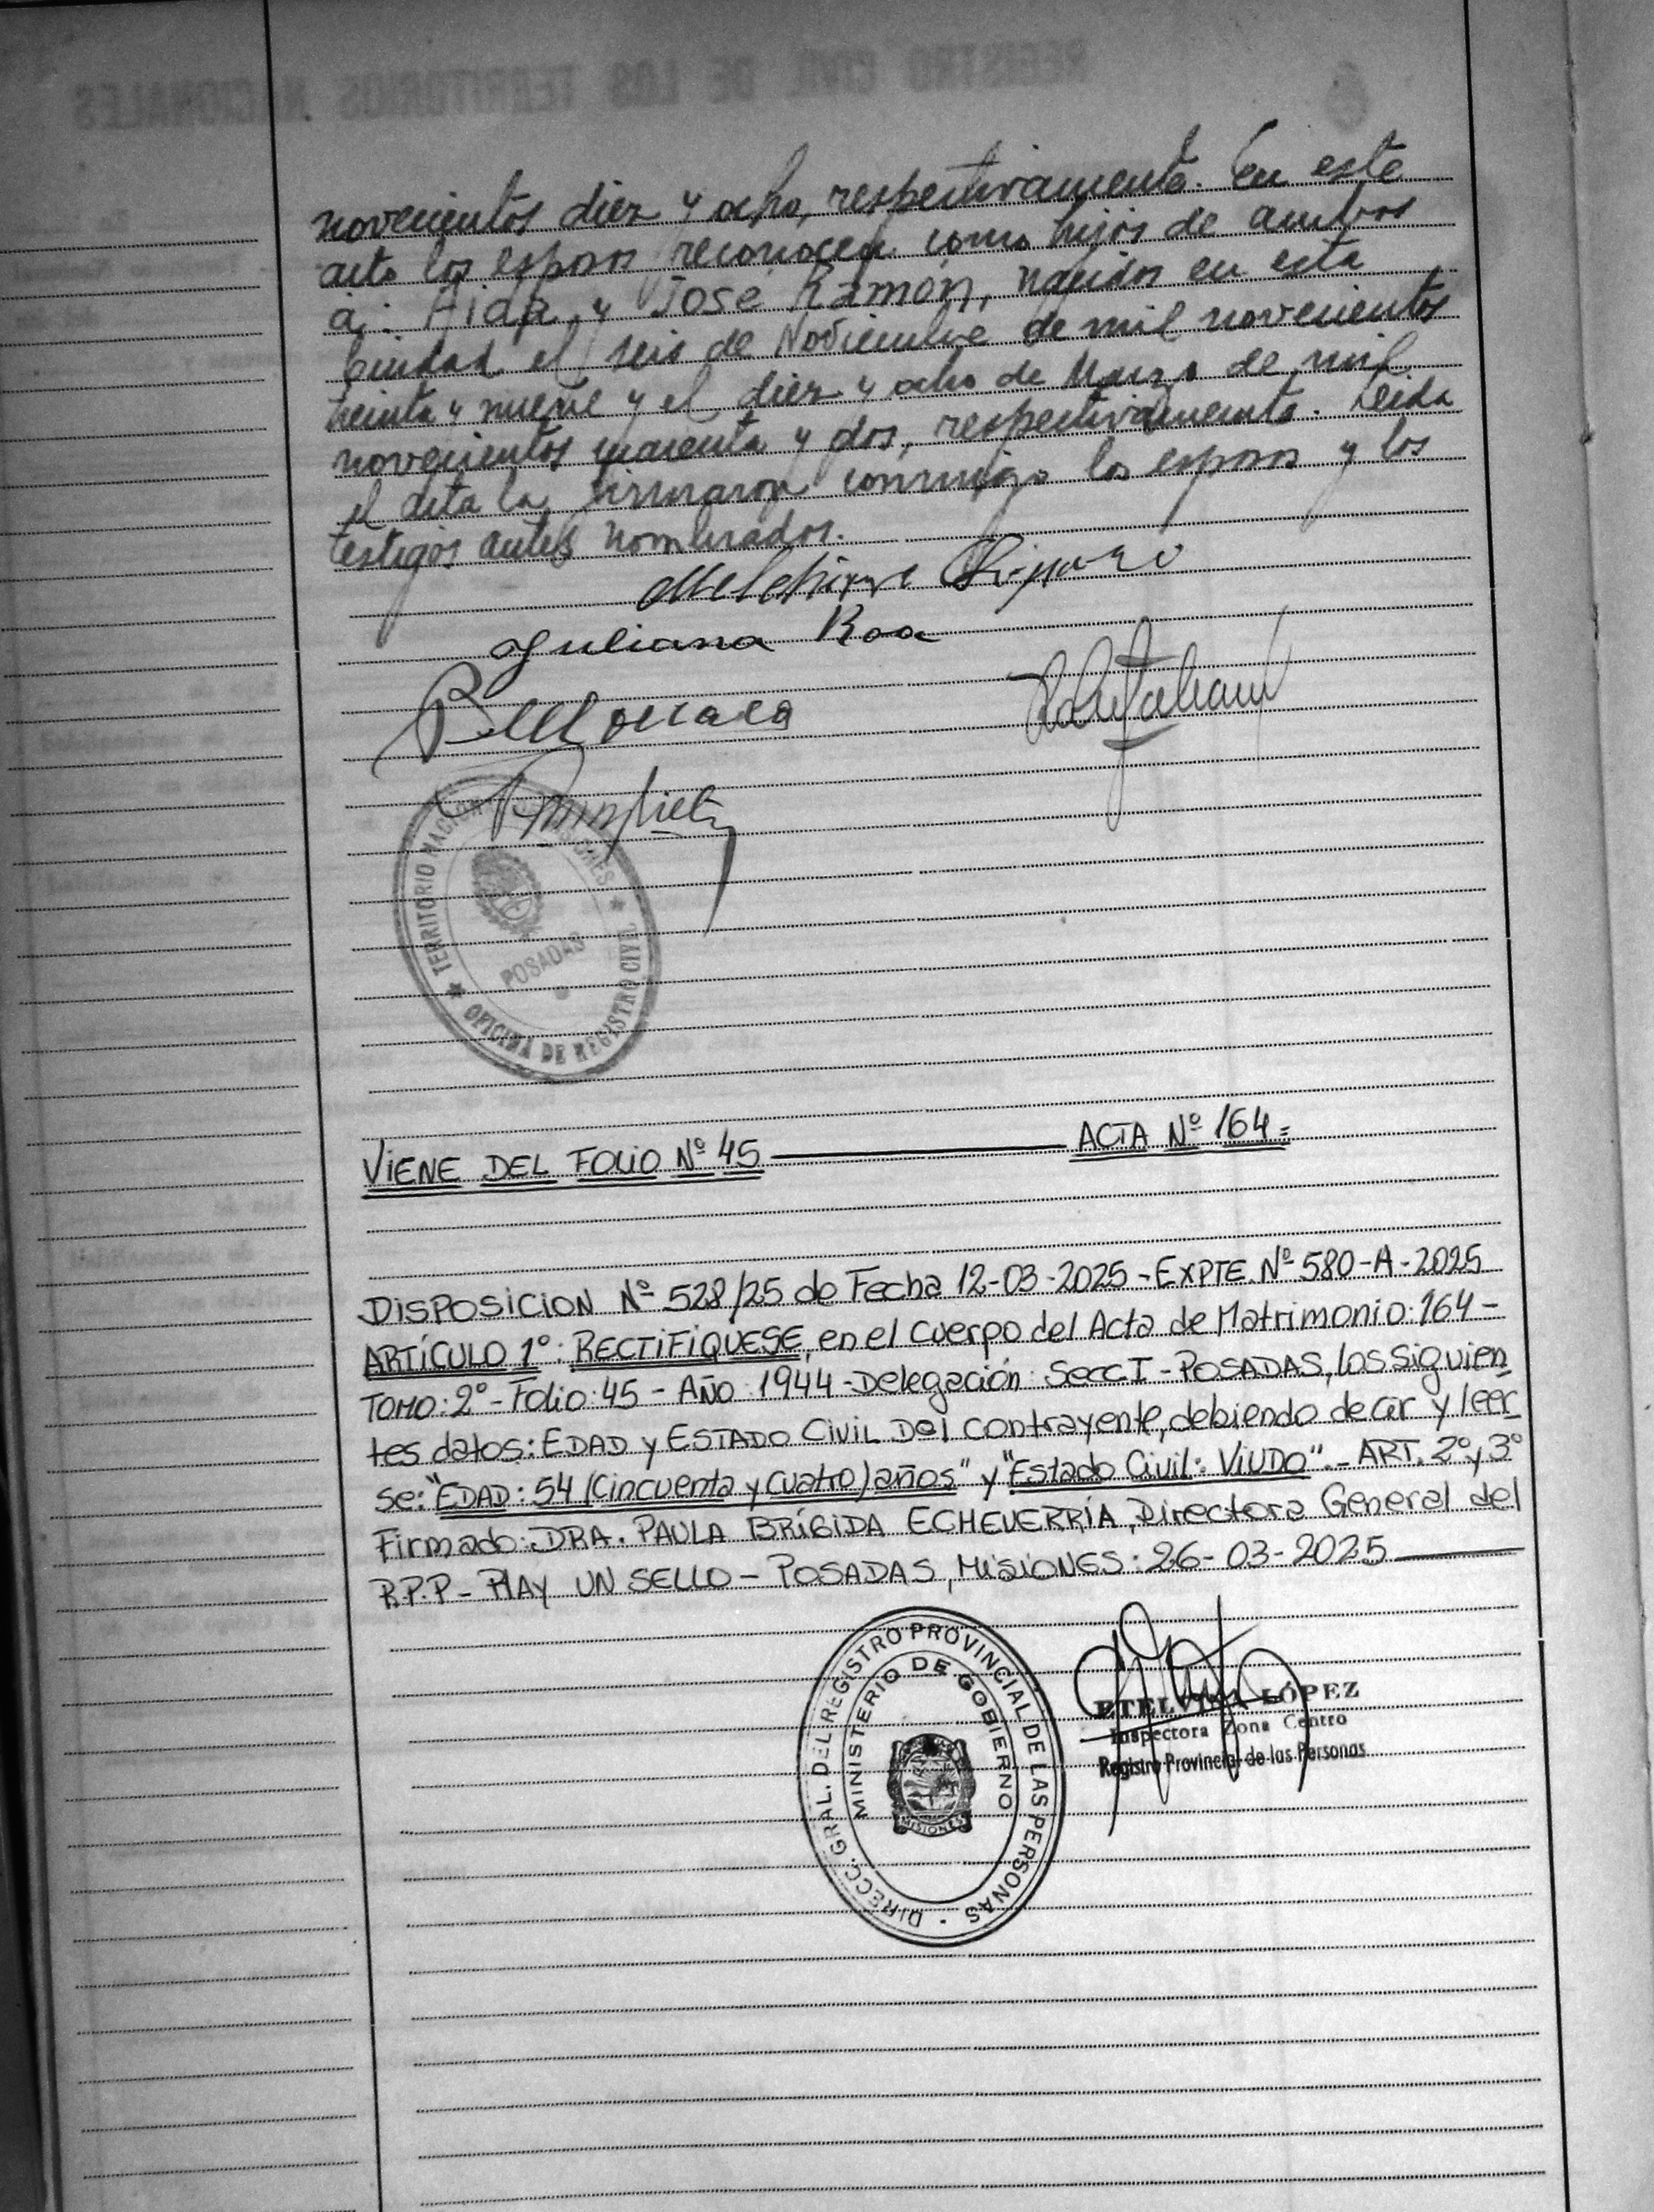 REGISTRO CIVIL DE LOS TERRITORIOS NACIONALES
novecientos diez y ocho, respectivamente. En este
acto los esposos reconocen como hijos de ambos
a: Aida y José Ramón, nacidos en esta
Ciudad el seis de Noviembre de mil novecientos
treinta y nueve y el diez y ocho de Marzo de mil
novecientos cuarenta y dos, respectivamente. Leida
el acta la firmaron conmigo los esposos y los
testigos antes nombrados.
Juliana Roa
TERRITORIO NACIONAL MISIONES
POSADAS
OFICINA DE REGISTRO CIVIL
VIENE DEL FOLIO Nº 45 ACTA Nº 164=
DISPOSICION Nº 528/25 de Fecha 12-03-2025 - EXPTE. Nº 580-A-2025
ARTÍCULO 1º: RECTIFÍQUESE, en el cuerpo del Acta de Matrimonio: 164 -
TOMO: 2º - Folio: 45 - AÑO: 1944 - Delegación: Secc I - POSADAS, los siguien
tes datos: EDAD y ESTADO CIVIL Del contrayente, debiendo decir y leer
se: "EDAD: 54 (Cincuenta y cuatro) años" y "Estado Civil: VIUDO". - ART. 2º y 3º
Firmado: DRA. PAULA BRÍGIDA ECHEVERRÍA, Directora General del
R.P.P - HAY UN SELLO - POSADAS, MISIONES: 26-03-2025
DIRECC. GRAL. DEL REGISTRO PROVINCIAL DE LAS PERSONAS
MINISTERIO DE GOBIERNO
MISIONES
ETELVINA LÓPEZ
Inspectora Zona Centro
Registro Provincial de las Personas